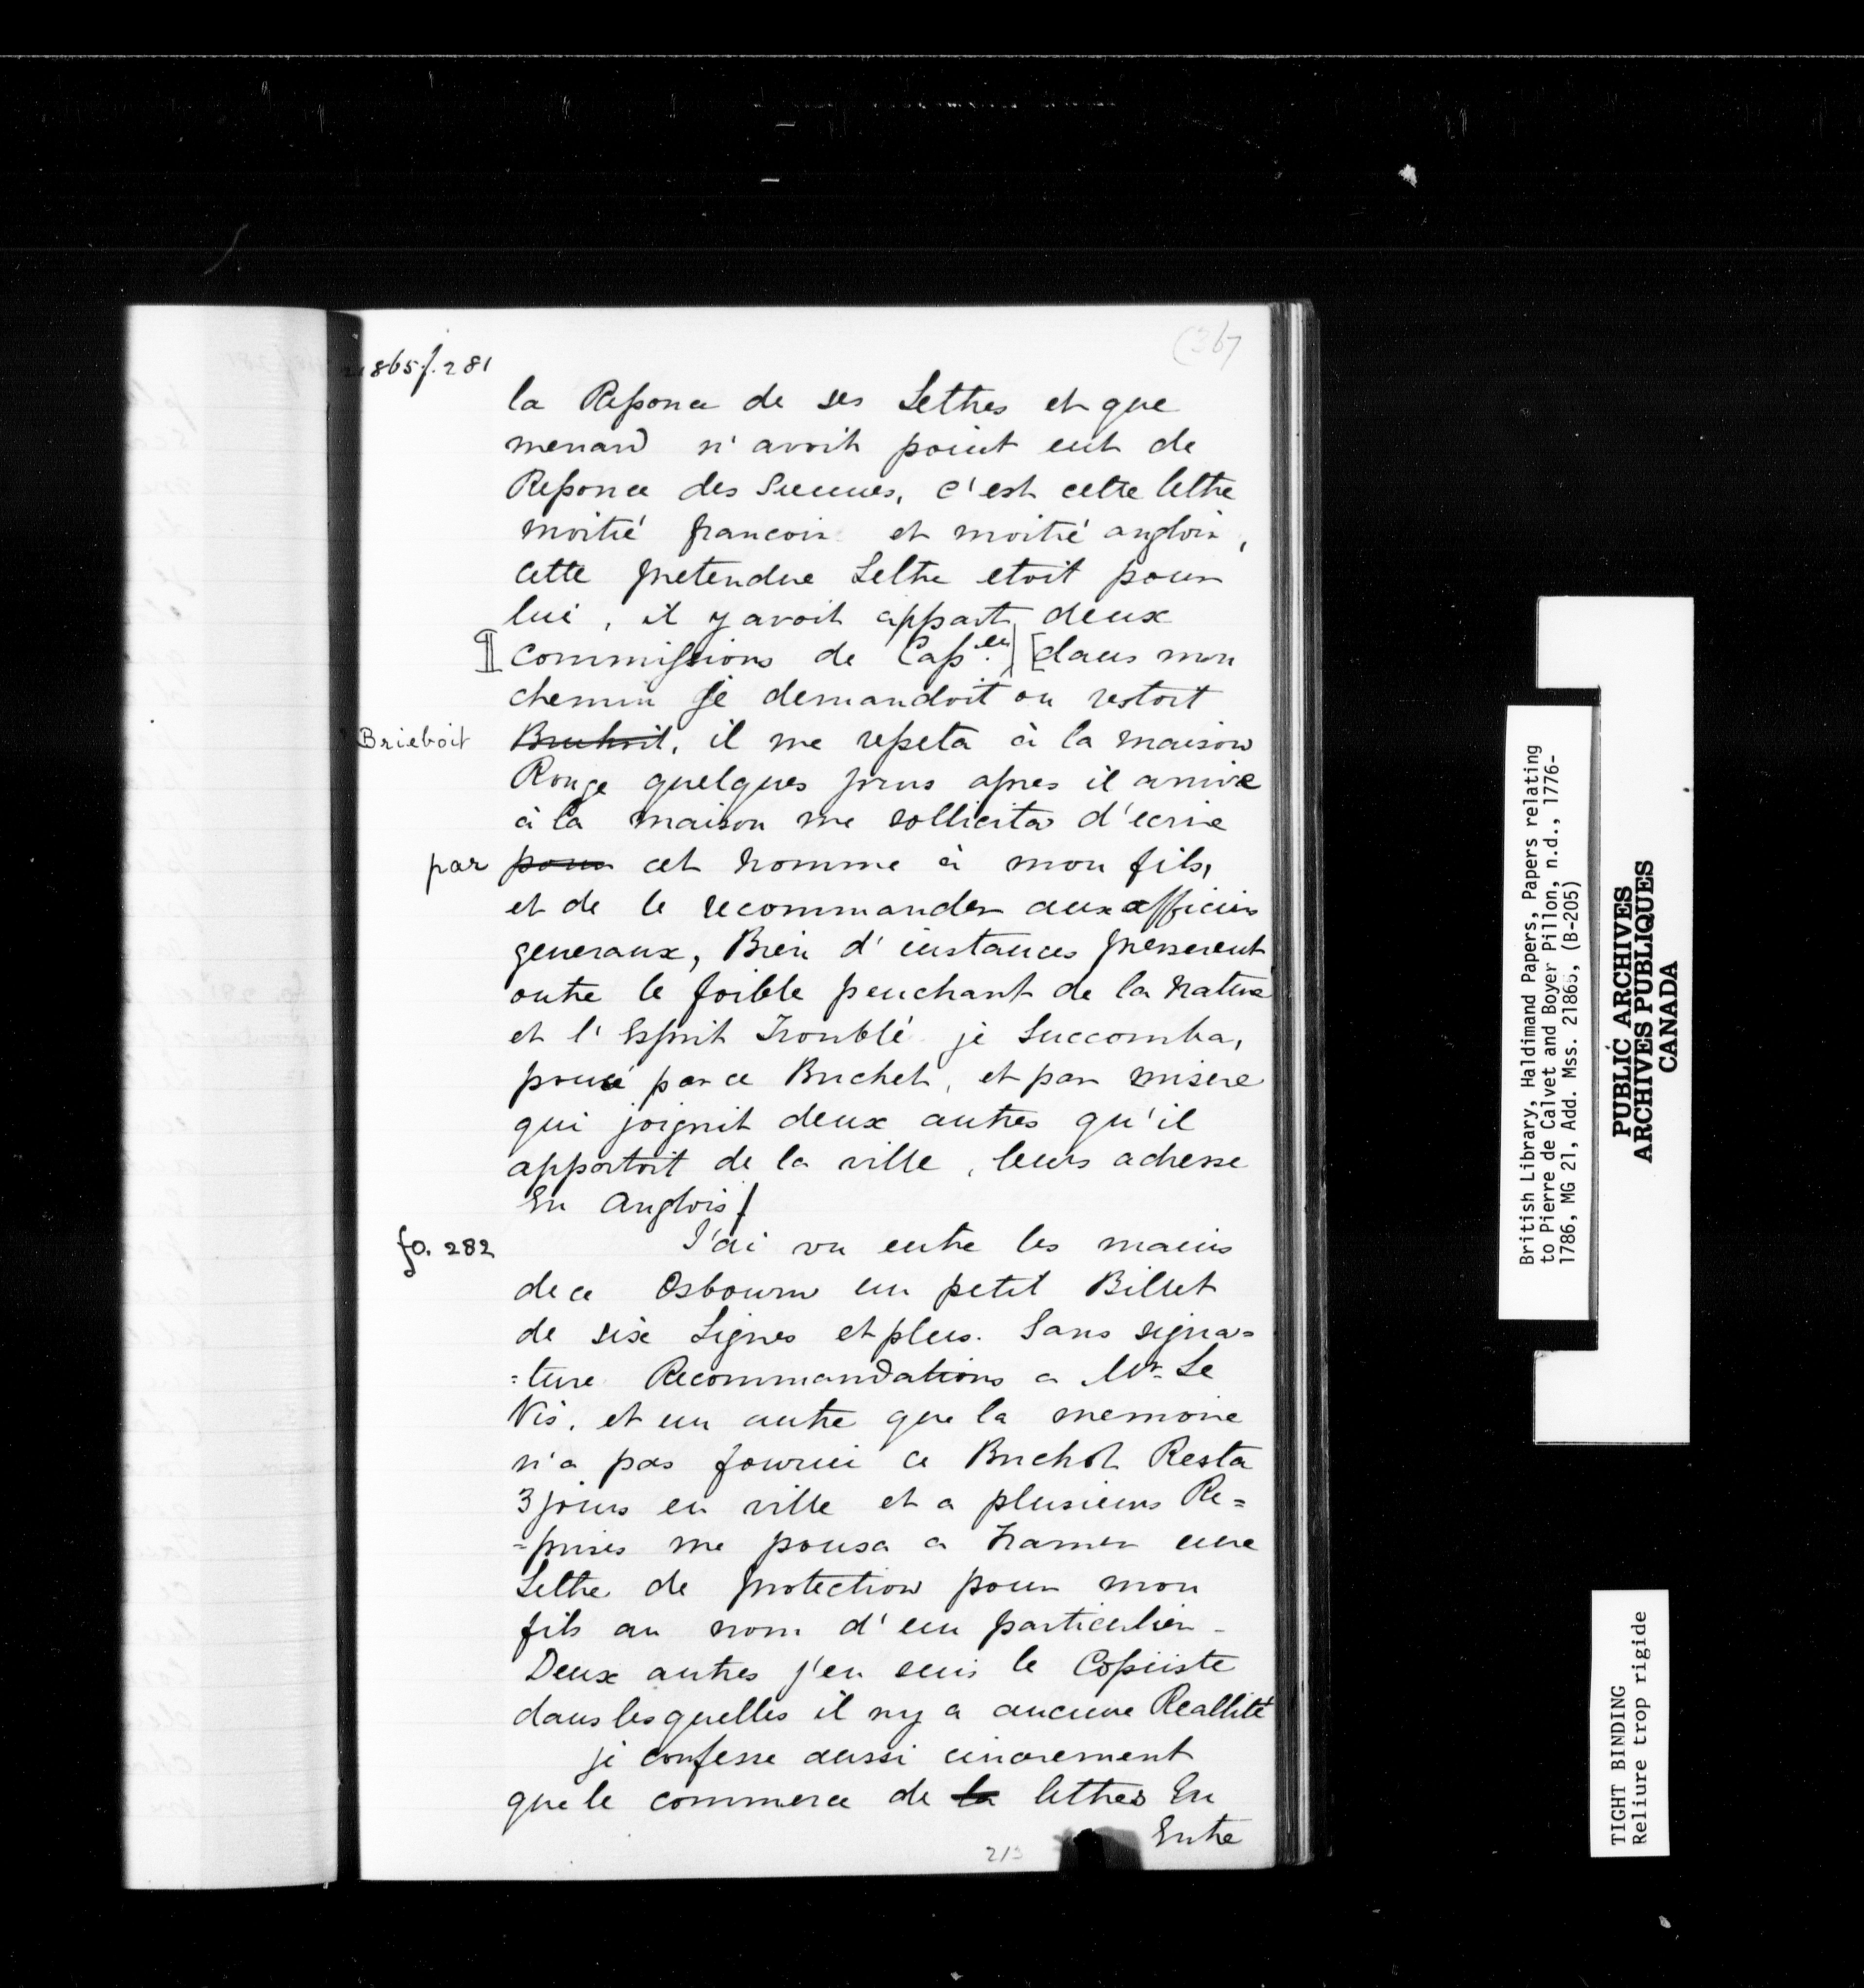 (367
21865 f. 281
la Reponce de ses Lettres et que
menard n'avoit point eut de
Reponce des Siennes, c'est cette lettre
moitié francois et moitié anglois,
cette pretendue Lettre etoit pour
lui, il y avoit appart deux
¶ Commissions de Cap.^en [dans mon
chemin je demandoit ou restoit
Brieboit Bruhoit, il me repeta à la maison
Rouge quelques jours apres il arrive
à la maison me sollicita d'ecrire
par pour cet homme à mon fils,
et de le recommander aux officiers
generaux, Bien d'instances presserent
outre le foible penchant de la Nature
et l'Esprit Troublé je Succomba,
pousé par ce Buchet, et par misere
qui joignit deux autres qu'il
apportoit de la ville, leurs adresse
En Anglois/
fo. 282 J'ai vu entre les mains
de ce Osbourn un petit Billet
de six Lignes et plus. Sans signa=
=ture Recommandations a Mr. Le
Vis, et un autre que la memoire
n'a pas fourni ce Buchet Resta
3 jours en ville et a plusieurs Re=
=prises me pousa a tramer une
Lettre de protection pour mon
fils au nom d'un particulier -
Deux autres j'en suis le Copiiste
dans lesquelles il ny a aucune Reallité
je confesse aussi cincerement
que le commerce de la lettres En
Entre
213
British Library, Haldimand Papers, Papers relating
to Pierre de Calvet and Boyer Pillon, n.d., 1776-
1786, MG 21, Add. Mss. 21865, (B-205)
PUBLIC ARCHIVES
ARCHIVES PUBLIQUES
CANADA
TIGHT BINDING
Reliure trop rigide